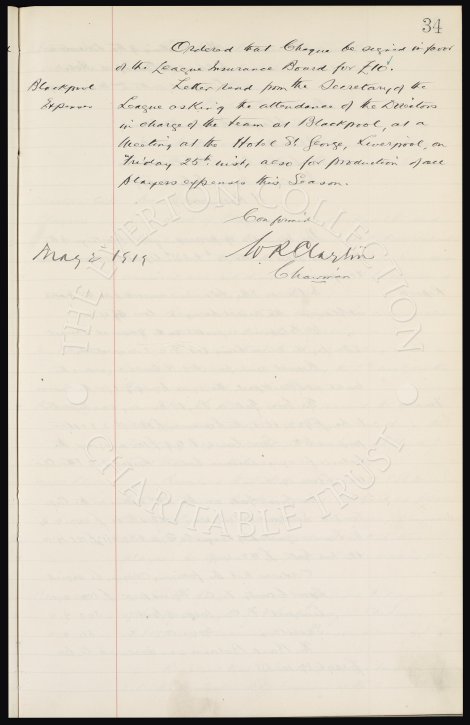 34
Ordered that Cheque be signed in favor
of the League Insurance Board for £10.
Blackpool
Expenses
Letter read from the Secretary of the
League asking the attendance of the Directors
in charge of the team at Blackpool, at a
Meeting at the Hotel St George, Liverpool, on
Friday 25th inst, also for production of all
players expenses this Season.
Confirmed
May 2 1919
W R Clayton
Chairman
THE EVERTON COLLECTION
CHARITABLE TRUST